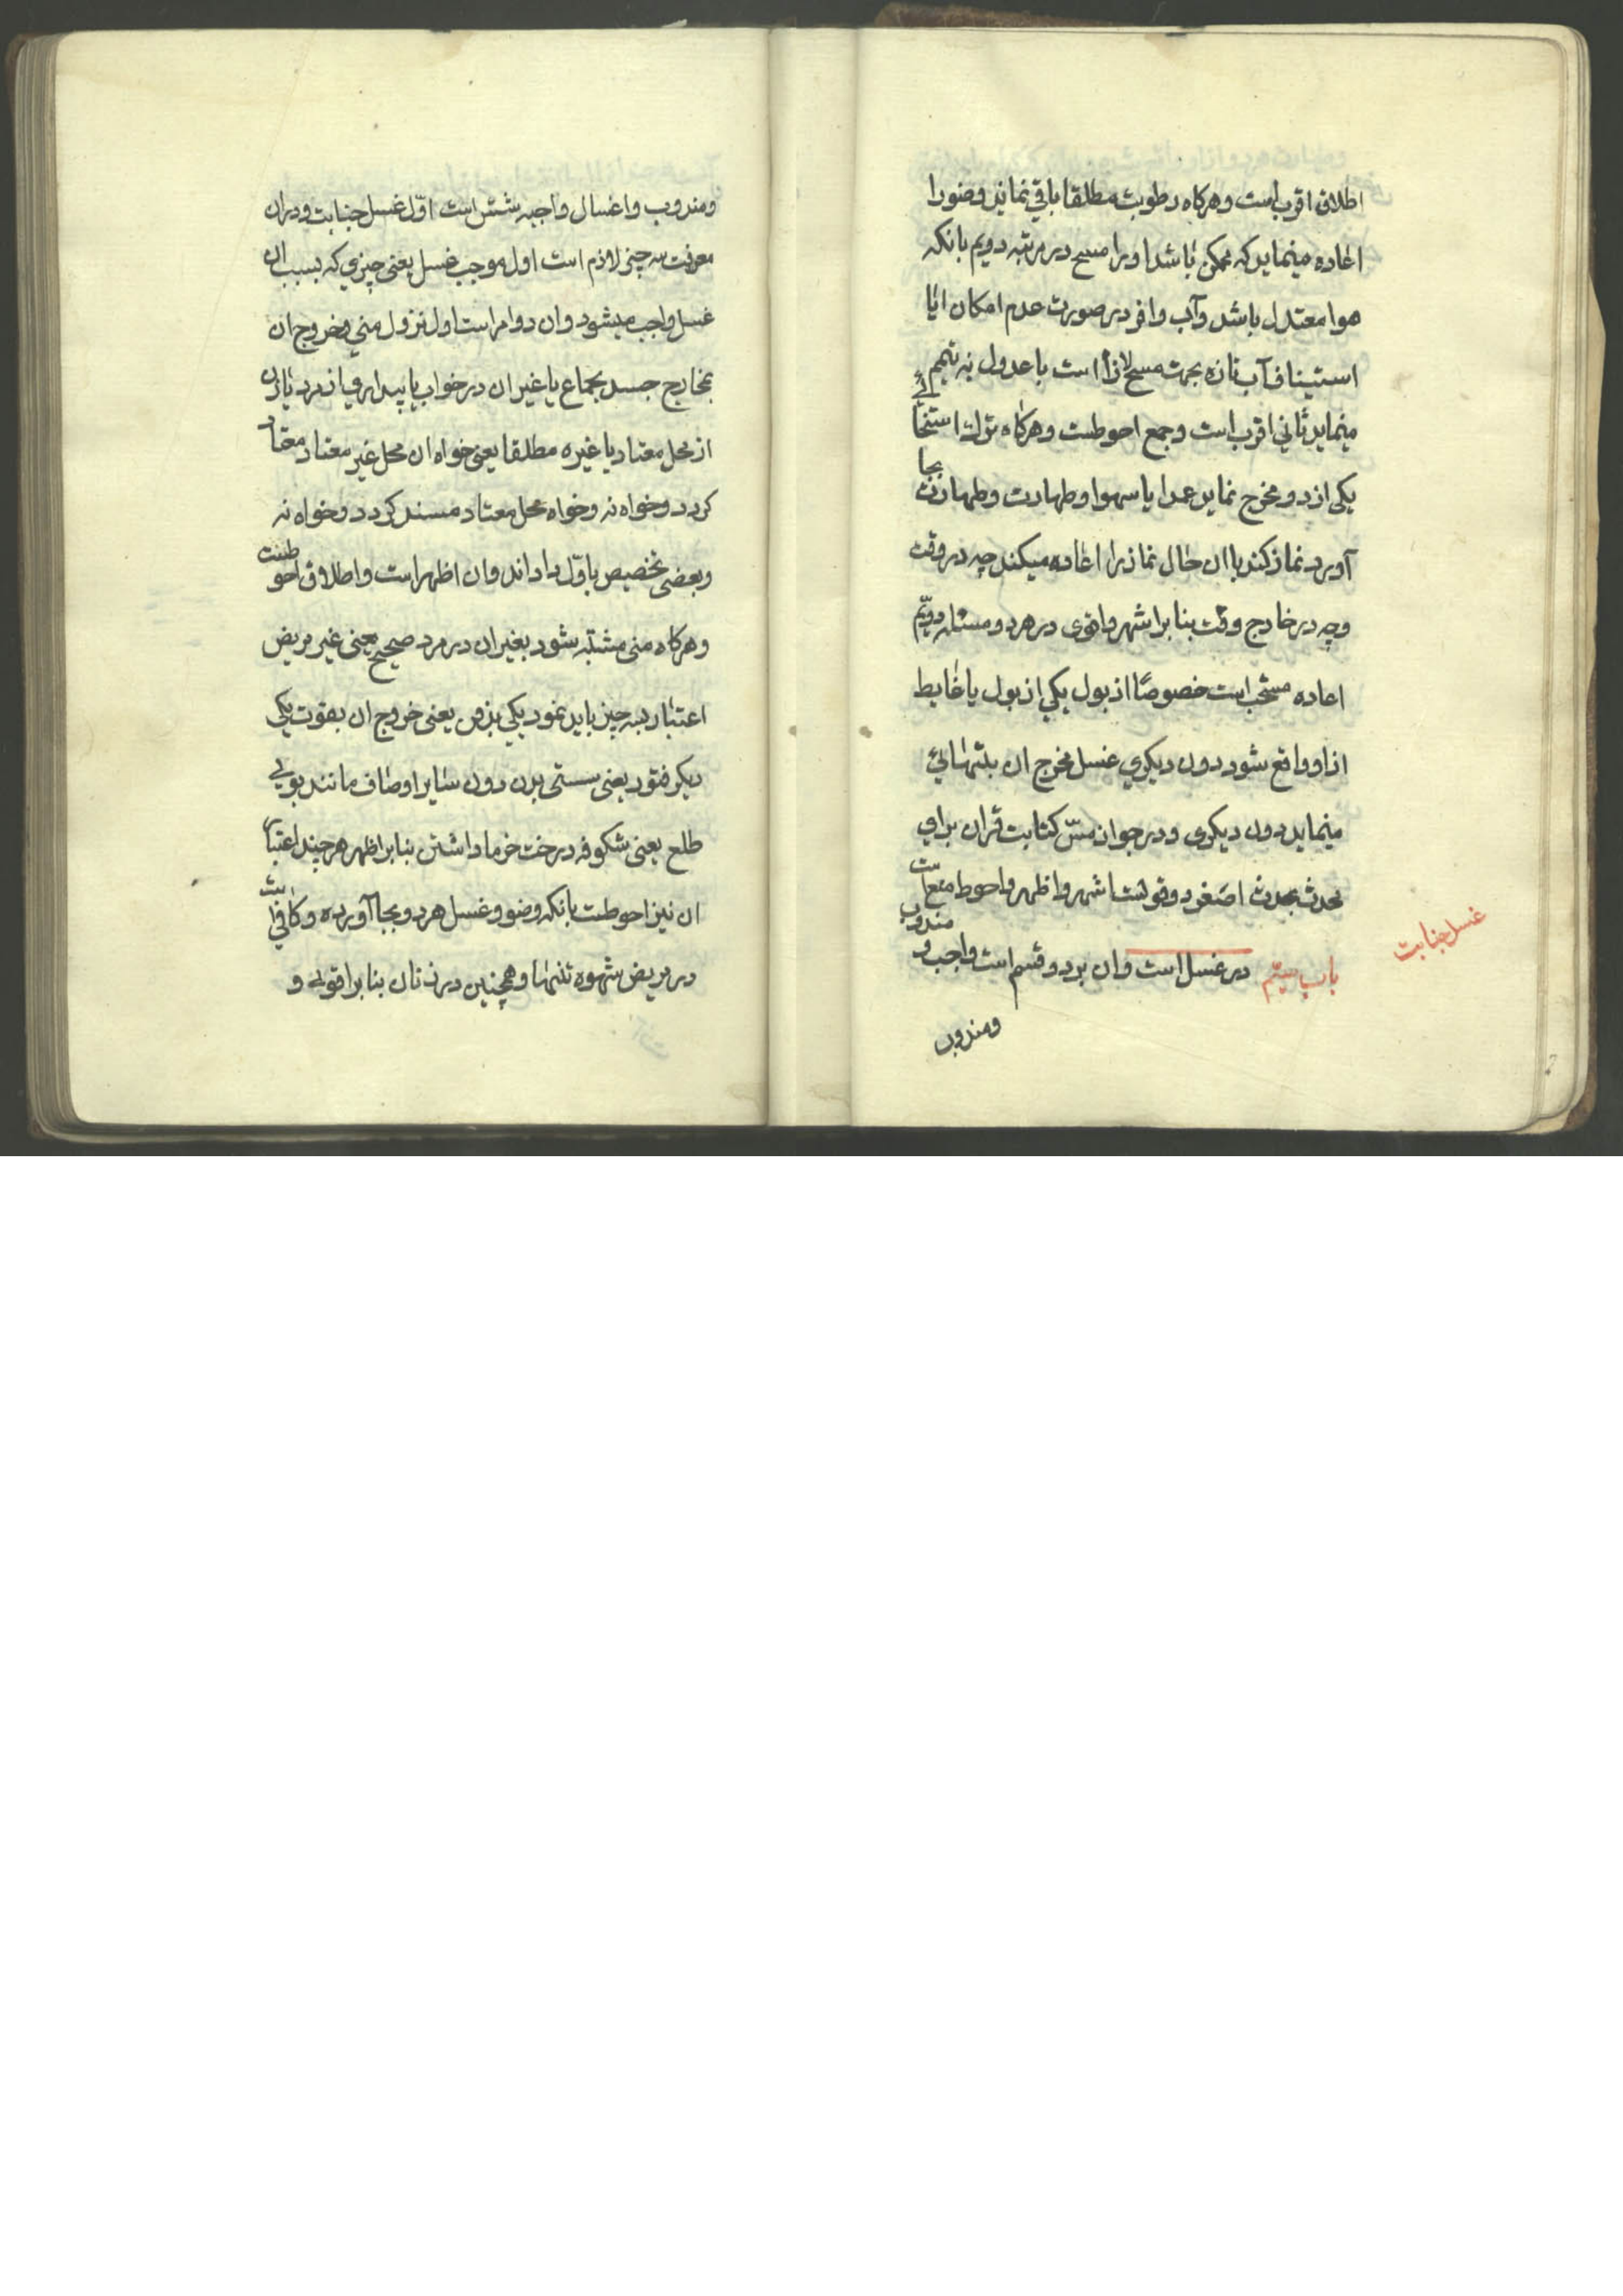 اطلاق اقرب است و هرکاه رطوبت مطلقا باقی نماید وضورا
اعاده مینماید که ممکن باشد اورا مسح در مرتبه دویم بانکه
هوا معتدل باشد وآب وافر در صورت عدم امکان ایا
استیناف آب تازه بجهت مسح لازم است یا عدول به تیمم
مینماید ثانی اقرب است وجمع احوطست وهرکاه ترک استنجا
یکی از دو مخرج نماید عمدا یا سهوا وطهارت وطهارت بجا
آورد نماز کند باان حال نمازرا اعاده میکند چه در وقت
وچه در خارج وقت بنابر اشهر واقوی در هر دو مسئله دویم
اعاده مستحب است خصوصًا از بول یکی از بول یا غایط
ازاو واقع شود دون دیکری غسل مخرج ان بتنهائی
مینماید دون دیکری ودر جواز مسّ کتابت قران برای
محدث بحدث اصغر دو قولست اشهر واظهر واحوط منع است
باب سیّم در غسل است وان بر دو قسم است واجب و مندوب
غسل جنابت
ومندوب
ومندوب واغسال واجبه شش است اوّل غسل جنابت ودران
معرفت سه چیز لازم است اول موجب غسل یعنی چیزی که بسبب ان
غسل واجب میشود وان دوامر است اول نزول منی وخروج ان
بخارج جسد بجماع یا غیر ان در خواب یا بیداری از مرد یا زن
از محل معتاد یا غیره مطلقا یعنی خواه ان محل غیر معتاد معتاد
کردد وخواه نه وخواه محل معتاد مسند کردد وخواه نه
وبعضی تخصیص باوّل داداند وان اظهر است واطلاق احوطست
وهرکاه منی مشتبه شود بغیر ان در مرد صحیح یعنی غیر مریض
اعتبار بسه چیز باید نمود یکی بذوق یعنی خروج ان بقوت یکی
دیکر فتور یعنی سستی بدن دون سایر اوصاف مانند بوی
طلع یعنی شکوفه درخت خرما داشتن بنابر اظهر هر چند اعتبار
ان نیز احوطست بانکه وضو وغسل هر دو بجا آورده وکافی است
در مریض شهوه تنها وهمچنین در زنان بنابر اقوی و